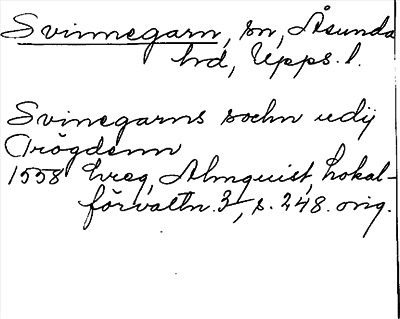 Svinnegarn, sn, Åsunda
hd, Upps. l.
Svinegarns sochn udij
Trögdenn
1558 Almquist, Lokal-
förvaltn. 3, s. 248. orig.